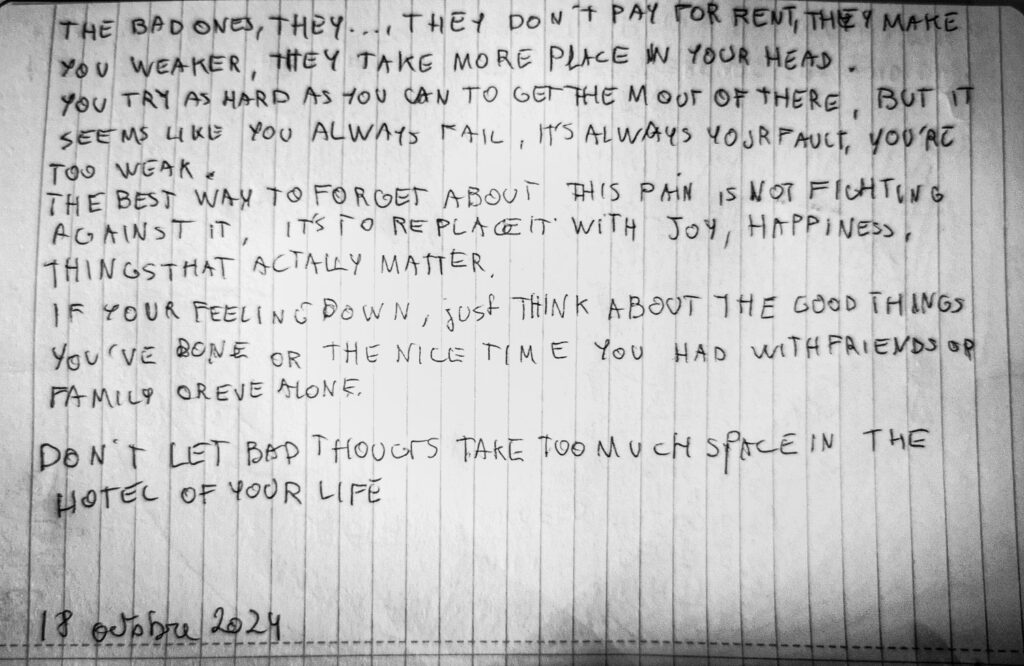 THE BAD ONES, THEY...., THEY DON'T PAY FOR RENT, THEY MAKE
YOU WEAKER, THEY TAKE MORE PLACE IN YOUR HEAD.
YOU TRY AS HARD AS YOU CAN TO GET THE M OUT OF THERE, BUT IT
SEEMS LIKE YOU ALWAYS FAIL, IT'S ALWAYS YOUR FAULT, YOU'RE
TOO WEAK.
THE BEST WAY TO FORGET ABOUT THIS PAIN IS NOT FIGHTING
AGAINST IT, IT'S TO REPLACE IT WITH JOY, HAPPINESS,
THINGS THAT ACTALLY MATTER.
IF YOUR FEELING DOWN, just THINK ABOUT THE GOOD THINGS
YOU'VE DONE OR THE NICE TIME YOU HAD WITH FRIENDS OR
FAMILY OR EVE ALONE.
DON'T LET BAD THOUGTS TAKE TOO MUCH SPACE IN THE
HOTEL OF YOUR LIFE
18 octobre 2024